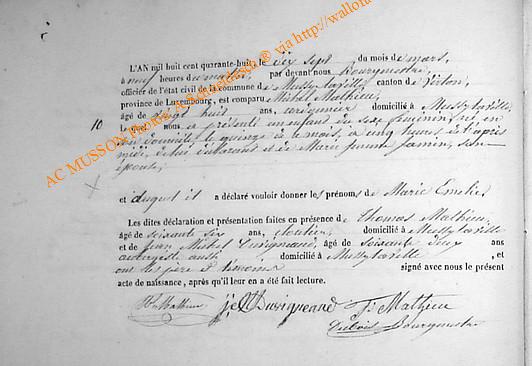 AC MUSSON Photos A.Schlechter ® via http://wallonia
L'AN mil huit cent quarante-huit, le dix sept du mois de mars,
à neuf heures du matin, par devant nous Bourgmestre,
officier de l'état civil de la commune de Mussy la ville canton de Virton,
province de Luxembourg, est comparu Michel Mathieu,
âgé de vingt huit ans, cordonnier domicilié à Mussy la ville
10 Lequel nous a présenté un enfant du sexe féminin, né en
son domicile, le quinze de ce mois, à cinq heures de l'après
midi, de lui déclarant et de Marie Jeanne Jamin, son
épouse,
et auquel il a déclaré vouloir donner les prénoms de Marie Emelie,
Les dites déclaration et présentation faites en présence de Thomas Mathieu,
âgé de soixante six ans, cloutier, domicilié à Mussy la ville
et de Jean Michel Dusigneaud, âgé de soixante deux ans
domicilié à Mussy la ville, et
ont les père et témoins signé avec nous le présent
acte de naissance, après qu'il leur en a été fait lecture.
Mathieu J M Dusigneaud Mathieu
Dubois Bourgmestre